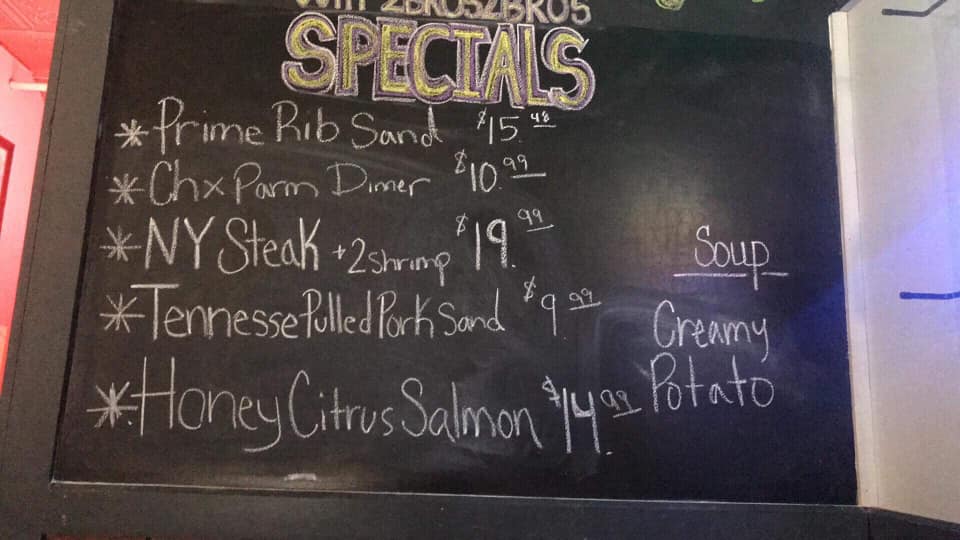 WITH 2BROS2BROS
SPECIALS
* Prime Rib Sand $15.48
* Chx Parm Dinner $10.99
* NY Steak +2 shrimp $19.99
* Tennesse Pulled Pork Sand $9.99
* Honey Citrus Salmon $14.99
Soup
Creamy
Potato